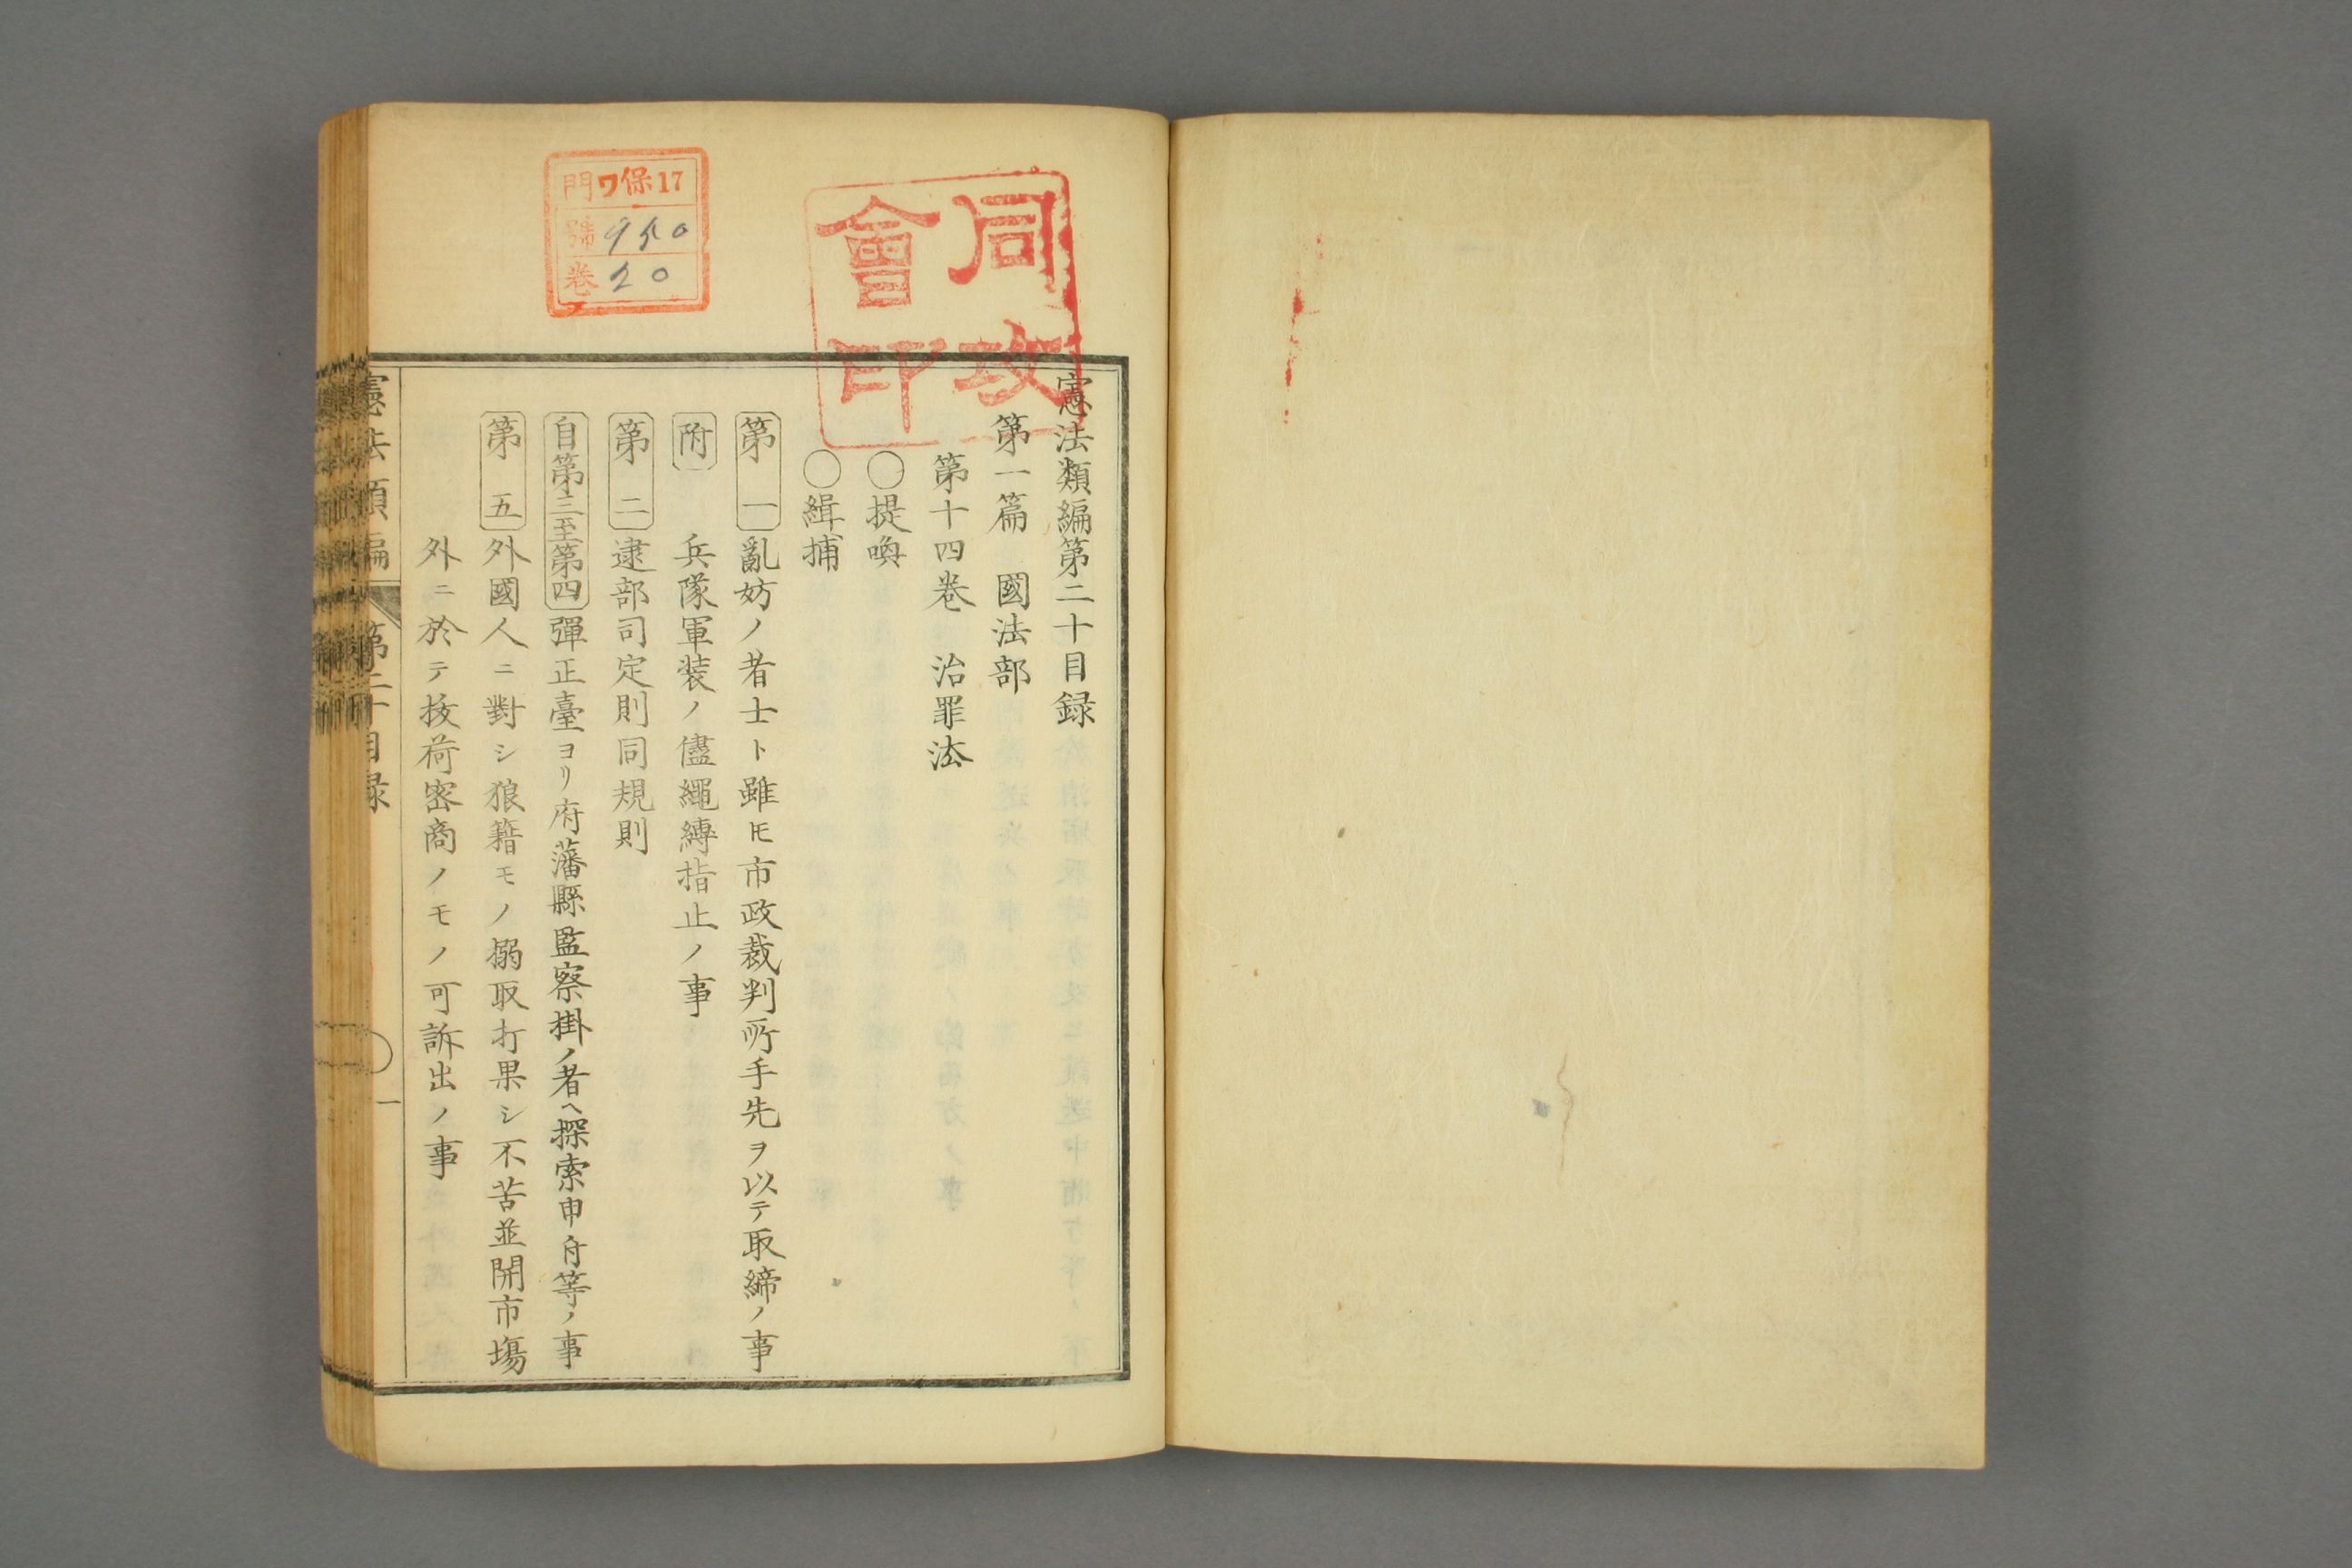 憲法類編第二十目録
第一篇　國法部
第十四巻　治罪法
〇提喚
〇緝捕
第一　亂妨ノ者士ト雖モ市政裁判所手先ヲ以テ取締ノ事
附　兵隊軍装ノ儘繩縛指止ノ事
第二　逮部司定則同規則
自第三至第四　彈正臺ヨリ府藩縣監察掛ノ者ヘ探索申付等ノ事
第五　外國人ニ對シ狼籍モノ搦取打果シ不苦並開市塲
外ニ於テ拔荷密商ノモノ可訴出ノ事
憲法類編　第二十目録　一
同攻會印
門ワ保17
號950
巻20